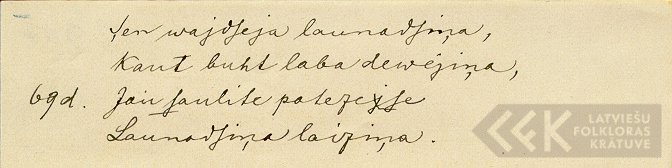 Sen wajdseja launadsiņa,
Kaut buht laba dewejiņa,
69d. Jau saulite patezejse
Launadsiņa laiziņa.
LATVIEŠU
FOLKLORAS
KRĀTUVE